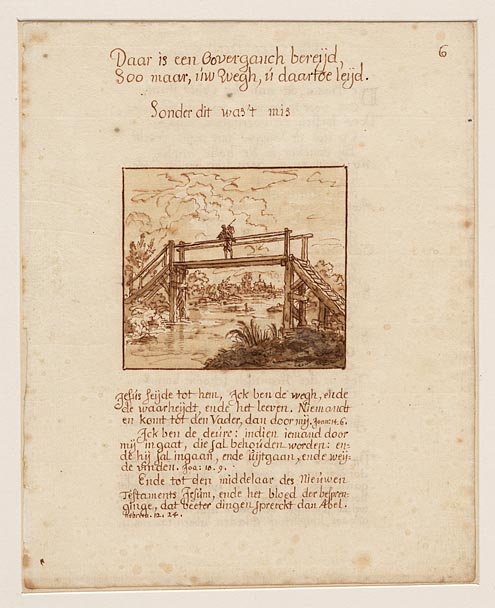 6
Daar is een Overganch bereijd,
Soo maar, úw Wegh, ú daartoe leijd.
Sonder dit was't mis
Jesús seijde tot hem, Ick ben de wegh, ende
de waarheijdt, ende het leeven. Niemandt
en komt tot den Vader, dan door mij. Joan: 14. 6.
Ick ben de deúre: indien iemand door
mij ingaat, die sal behouden worden: en-
de hij sal ingaan, ende úijtgaan, ende weij-
de vinden. Joa: 10. 9.
Ende tot den middelaar des Nieuwen
Testaments Jesúm, ende het bloed der bespren-
ginge, dat beeter dingen spreeckt dan Abel.
Hebreen. 12. 24.